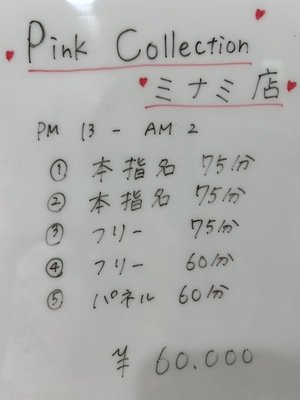 Pink Collection
ミナミ店
PM 13 - AM 2
① 本指名 75分
② 本指名 75分
③ フリー 75分
④ フリー 60分
⑤ パネル 60分
¥ 60.000